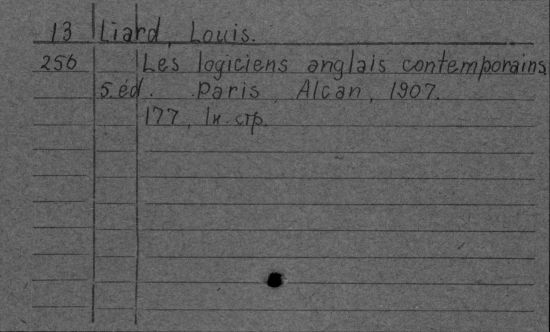 13 Liard, Louis.
256 Les logiciens anglais contemporains
5. éd. Paris, Alcan, 1907.
177, 1н. стр.